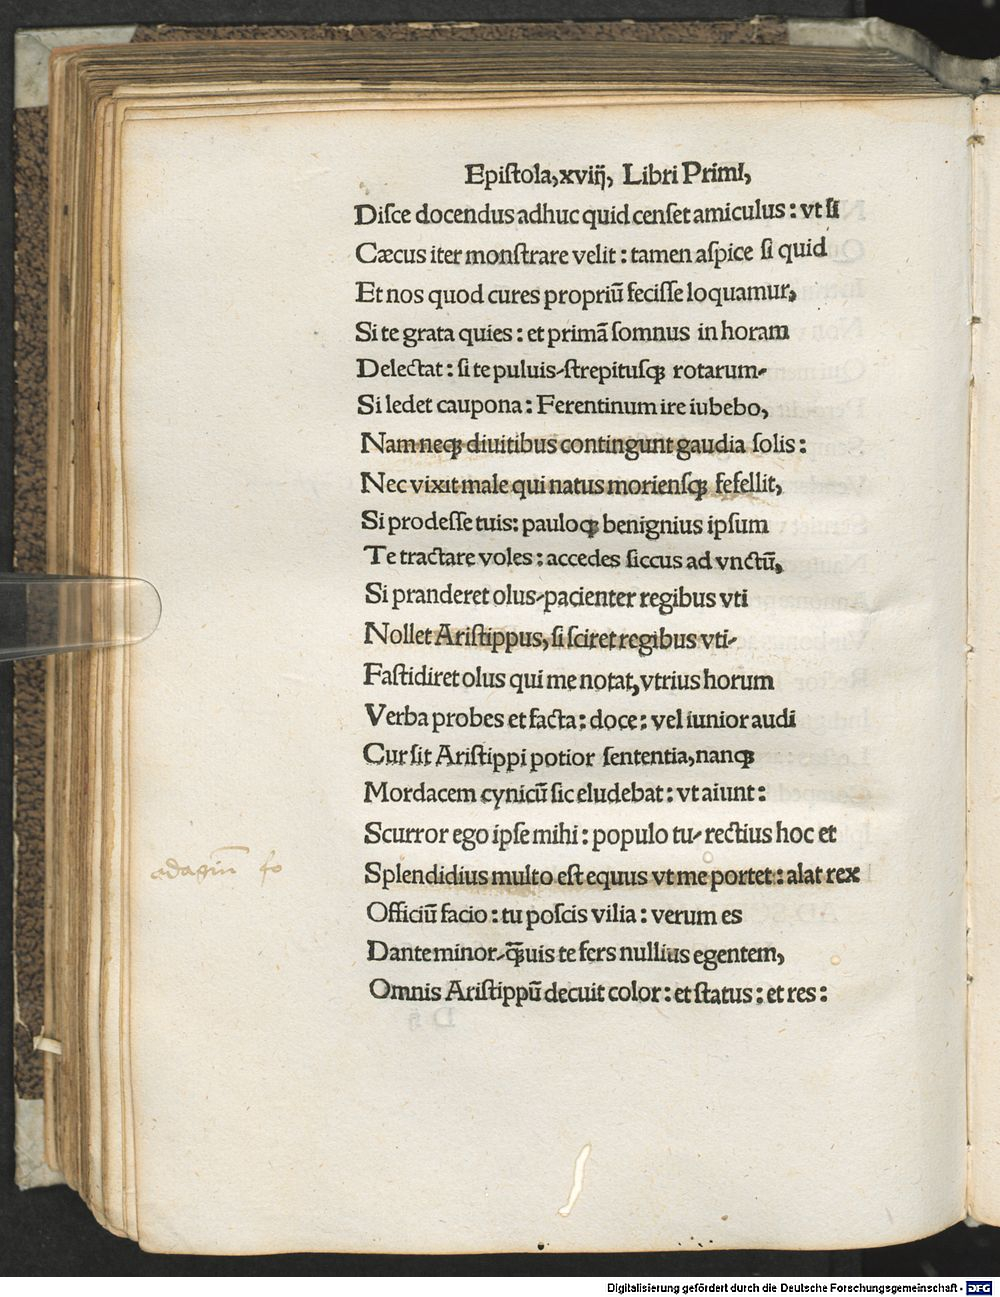 Epiſtola,xviij, Libri Primi,
Diſce docendus adhuc quid cenſet amiculus : vt ſi
Cæcus iter monſtrare velit : tamen aſpice ſi quid
Et nos quod cures propriū feciſſe loquamur,
Si te grata quies : et primā ſomnus in horam
Delectat : ſi te puluis-ſtrepituſqꝫ rotarum-
Si ledet caupona : Ferentinum ire iubebo,
Nam neqꝫ diuitibus contingunt gaudia ſolis :
Nec vixit male qui natus morienſqꝫ fefellit,
Si prodeſſe tuis: pauloqꝫ benignius ipſum
Te tractare voles : accedes ſiccus ad vnctū,
Si pranderet olus-pacienter regibus vti
Nollet Ariſtippus, ſi ſciret regibus vti-
Faſtidiret olus qui me notat, vtrius horum
Verba probes et facta : doce : vel iunior audi
Cur ſit Ariſtippi potior ſententia, nanqꝫ
Mordacem cynicū ſic eludebat : vt aiunt :
Scurror ego ipſe mihi : populo tu- rectius hoc et
adagiū
Splendidius multo eſt equus vt me portet : alat rex
Officiū facio : tu poſcis vilia : verum es
Dante minor-qꝫ̄uis te fers nullius egentem,
Omnis Ariſtippū decuit color : et ſtatus : et res :
Digitalisierung gefördert durch die Deutsche Forschungsgemeinschaft - DFG